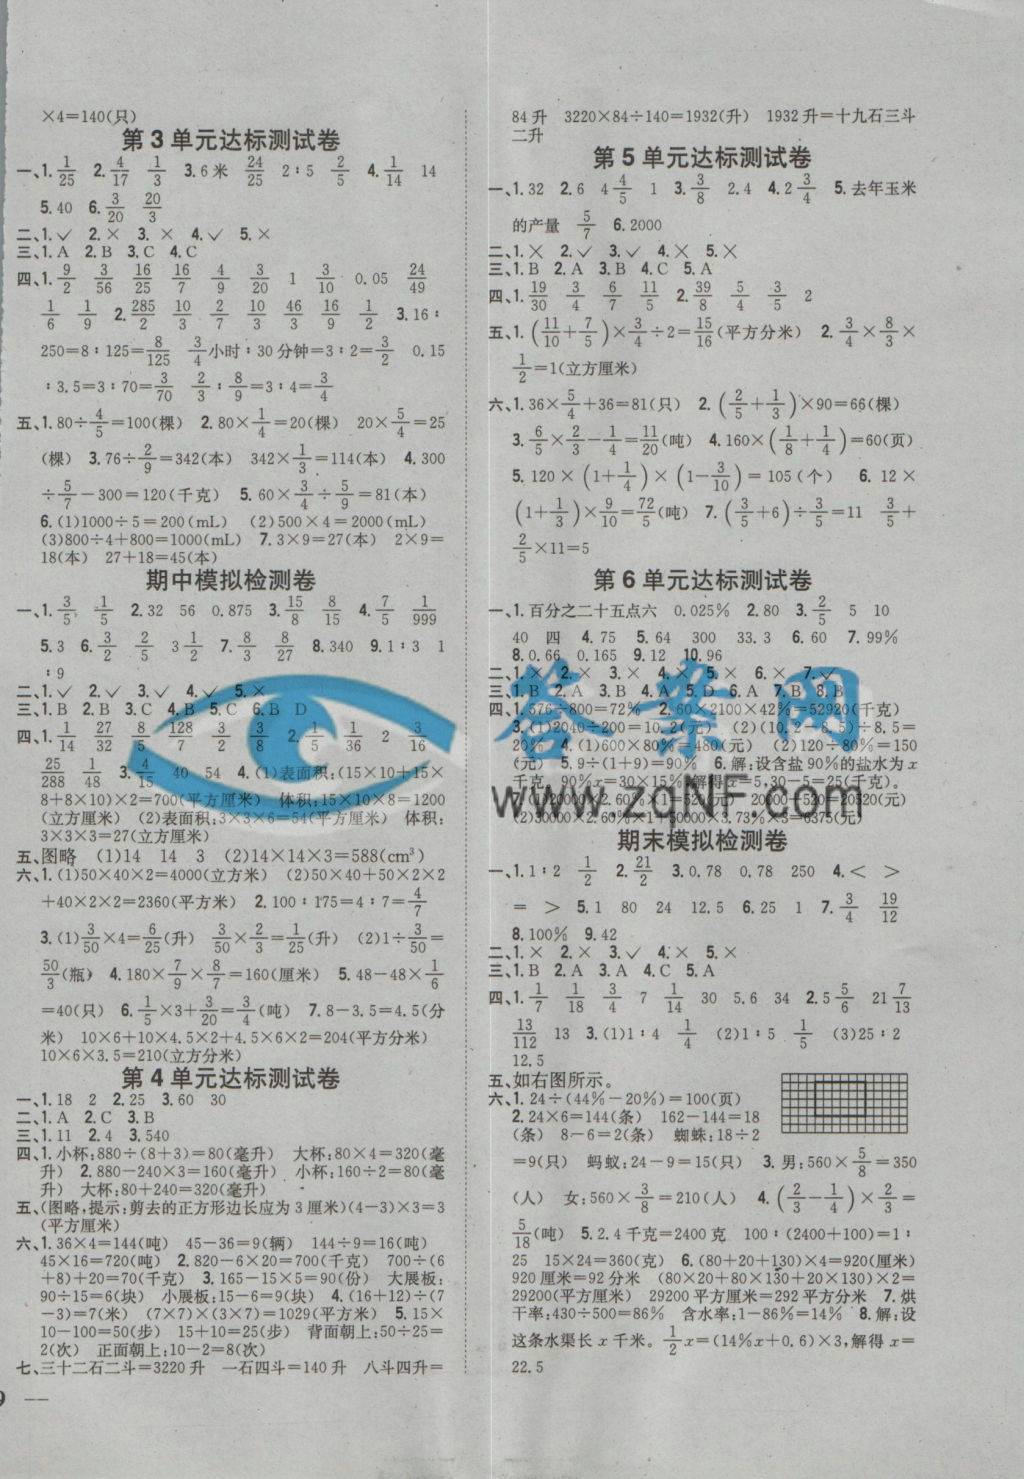 ×4=140(只)
第3单元达标测试卷
一、1. 1/25 2. 4/17 1/3 3. 6米 24/25 2∶5 2/5 4. 1/14 14
5. 40 6. 3/20 20/3
二、1. ✓ 2. × 3. × 4. ✓ 5. ×
三、1. A 2. B 3. C 4. C
四、1. 9/2 3/56 16/25 16/7 4/9 3/20 1 3/10 0.05 24/49
1/6 1/9 2. 285/2 10/3 2/7 10/3 46/3 16/9 1/2 3. 16∶
250=8∶125=8/125 3/4小时∶30分钟=3∶2=3/2 0.15
∶3.5=3∶70=3/70 2/3∶8/9=3∶4=3/4
五、1. 80÷4/5=100(棵) 2. 80×1/4=20(棵) 20×5/4=25
(棵) 3. 76÷2/9=342(本) 342×1/3=114(本) 4. 300
÷5/7-300=120(千克) 5. 60×3/4÷5/9=81(本)
6. (1)1000÷5=200(mL) (2)500×4=2000(mL)
(3)800÷4+800=1000(mL) 7. 3×9=27(本) 2×9=
18(本) 27+18=45(本)
期中模拟检测卷
一、1. 3/5 1/5 2. 32 56 0.875 3. 15/8 8/15 4. 7/5 1/999
5. 3 6. 3/2 2/5 3 1/2 7. 8/3 8/27 8. 340 9. 1∶3 1
∶9
二、1. ✓ 2. ✓ 3. ✓ 4. ✓ 5. ×
三、1. B 2. B 3. C 4. B 5. C 6. B D
四、1. 1/14 27/32 8/5 128/7 3/2 3/8 2. 1/5 1/36 2 3/16
25/288 1/48 3. 4/15 40 54 4. (1)表面积:(15×10+15×
8+8×10)×2=700(平方厘米) 体积:15×10×8=1200
(立方厘米) (2)表面积:3×3×6=54(平方厘米) 体积:
3×3×3=27(立方厘米)
五、图略 (1)14 14 3 (2)14×14×3=588(cm³)
六、1. (1)50×40×2=4000(立方米) (2)50×40+50×2×2
+40×2×2=2360(平方米) 2. 100∶175=4∶7=4/7
3. (1)3/50×4=6/25(升) 3/50×2/3=1/25(升) (2)1÷3/50=
50/3(瓶) 4. 180×7/9×8/7=160(厘米) 5. 48-48×1/6
=40(只) 6. 1/5×3+3/20=3/4(吨) 7. 8-3.5=4.5(分
米) 10×6+10×4.5×2+4.5×6×2=204(平方分米)
10×6×3.5=210(立方分米)
第4单元达标测试卷
一、1. 18 2 2. 25 3. 60 30
二、1. A 2. C 3. B
三、1. 11 2. 4 3. 540
四、1. 小杯:880÷(8+3)=80(毫升) 大杯:80×4=320(毫
升) 2. 880-240×3=160(毫升) 小杯:160÷2=80(毫
升) 大杯:80+240=320(毫升)
五、(图略,提示:剪去的正方形边长应为3厘米)(4-3)×3=3
(平方厘米)
六、1. 36×4=144(吨) 45-36=9(辆) 144÷9=16(吨)
45×16=720(吨) 2. 820-6×20=700(千克) 700÷(6
+8)+20=70(千克) 3. 165-15×5=90(份) 大展板:
90÷15=6(块) 小展板:15-6=9(块) 4. (16+12)÷(7
-3)=7(米) (7×7)×(3×7)=1029(平方米) 5. 15×
10-100=50(步) 15+10=25(步) 背面朝上:50÷25=
2(次) 正面朝上:10-2=8(次)
七、三十二石二斗=3220升 一石四斗=140升 八斗四升=
84升 3220×84÷140=1932(升) 1932升=十九石三斗
二升
第5单元达标测试卷
一、1. 32 2. 6 4 4/5 1 3. 3/8 2.4 4. 2 3/4 5. 去年玉米
的产量 5/7 6. 2000
二、1. × 2. ✓ 3. ✓ 4. × 5. ×
三、1. B 2. A 3. B 4. C 5. A
四、1. 19/30 3/4 6/7 11/5 2. 39/8 5/4 3/5 2
五、1. (11/10+7/5)×3/4÷2=15/16(平方分米) 2. 3/4×8/3×
1/2=1(立方厘米)
六、1. 36×5/4+36=81(只) 2. (2/5+1/3)×90=66(棵)
3. 6/5×2/3-1/4=11/20(吨) 4. 160×(1/8+1/4)=60(页)
5. 120×(1+1/4)×(1-3/10)=105(个) 6. 12×
(1+1/3)×9/10=72/5(吨) 7. (3/5+6)÷3/5=11 3/5+
2/5×11=5
第6单元达标测试卷
一、1. 百分之二十五点六 0.025% 2. 80 3. 2/5 5 10
40 四 4. 75 5. 64 300 33.3 6. 60 7. 99%
8. 0.66 0.165 9. 12 10. 96
二、1. × 2. × 3. ✓ 4. × 5. × 6. × 7. ✓
三、1. B 2. A 3. B 4. A 5. D 6. A 7. B 8. B
四、1. 576÷800=72% 2. 60×2100×42%=52920(千克)
3. (1)2040÷200=10.2(元) (2)(10.2-8.5)÷8.5=
20% 4. (1)600×80%=480(元) (2)120÷80%=150
(元) 5. 9÷(1+9)=90% 6. 解:设含盐90%的盐水为x
千克。90%x=30×15% 解得x=5,30-5=25(千克)。
7. (1)20000×2.60%×1=520(元) 20000+520=20520(元)
(2)30000×2.60%×1+50000×3.73%×3=6375(元)
期末模拟检测卷
一、1. 1∶2 1/2 2. 21/2 3. 0.78 0.78 250 4. < >
= > 5. 1 80 24 12.5 6. 25 1 7. 3/4 19/12
8. 100% 9. 42
二、1. × 2. × 3. ✓ 4. × 5. ×
三、1. B 2. A 3. A 4. C 5. A
四、1. 1/7 1/18 3/4 7 1/14 30 5.6 34 2. 5 5/6 21 7/13
13/112 13 3. (1)1∶4 1/4 (2)1∶5 1/5 (3)25∶2
12.5
五、如右图所示。
六、1. 24÷(44%-20%)=100(页)
2. 24×6=144(条) 162-144=18
(条) 8-6=2(条) 蜘蛛:18÷2
=9(只) 蚂蚁:24-9=15(只) 3. 男:560×5/8=350
(人) 女:560×3/8=210(人) 4. (2/3-1/4)×2/3=
5/18(吨) 5. 2.4千克=2400克 100∶(2400+100)=1∶
25 15×24=360(克) 6. (80+20+130)×4=920(厘米)
920厘米=92分米 (80×20+80×130+20×130)×2=
29200(平方厘米) 29200平方厘米=292平方分米 7. 烘
干率:430÷500=86% 含水率:1-86%=14% 8. 解:设
这条水渠长x千米。1/2x=(14%x+0.6)×3,解得x=
22.5
答案网
www.zqNF.com
9